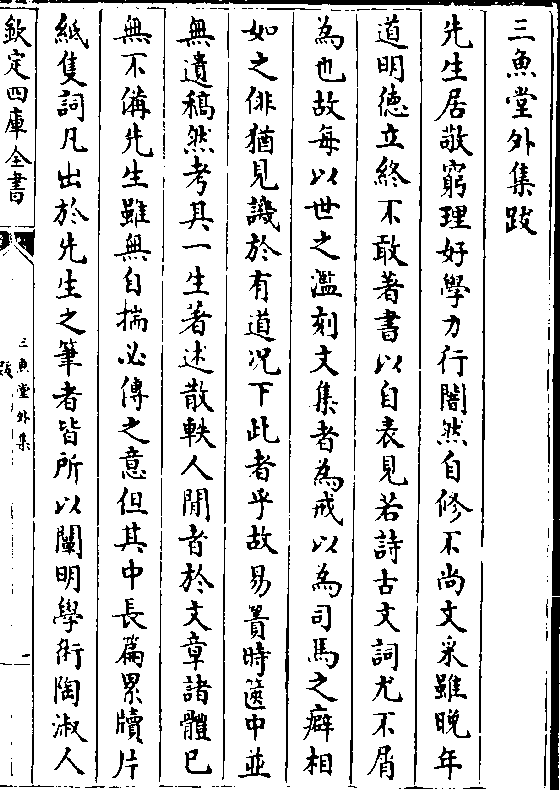 三魚堂外集跋
先生居敬窮理好學力行闇然自修不尚文采雖晚年
道明德立終不敢著書以自表見若詩古文詞尤不屑
為也故每以世之濫刻文集者為戒以為司馬之癖相
如之俳猶見譏於有道况下此者乎故易簀時篋中並
無遺稿然考其一生著述散軼人間者於文章諸體已
無不備先生雖無自揣必傳之意但其中長篇累牘片
紙隻詞凡出於先生之筆者皆所以闡明學術陶淑人
欽定四庫全書
三魚堂外集
跋
一